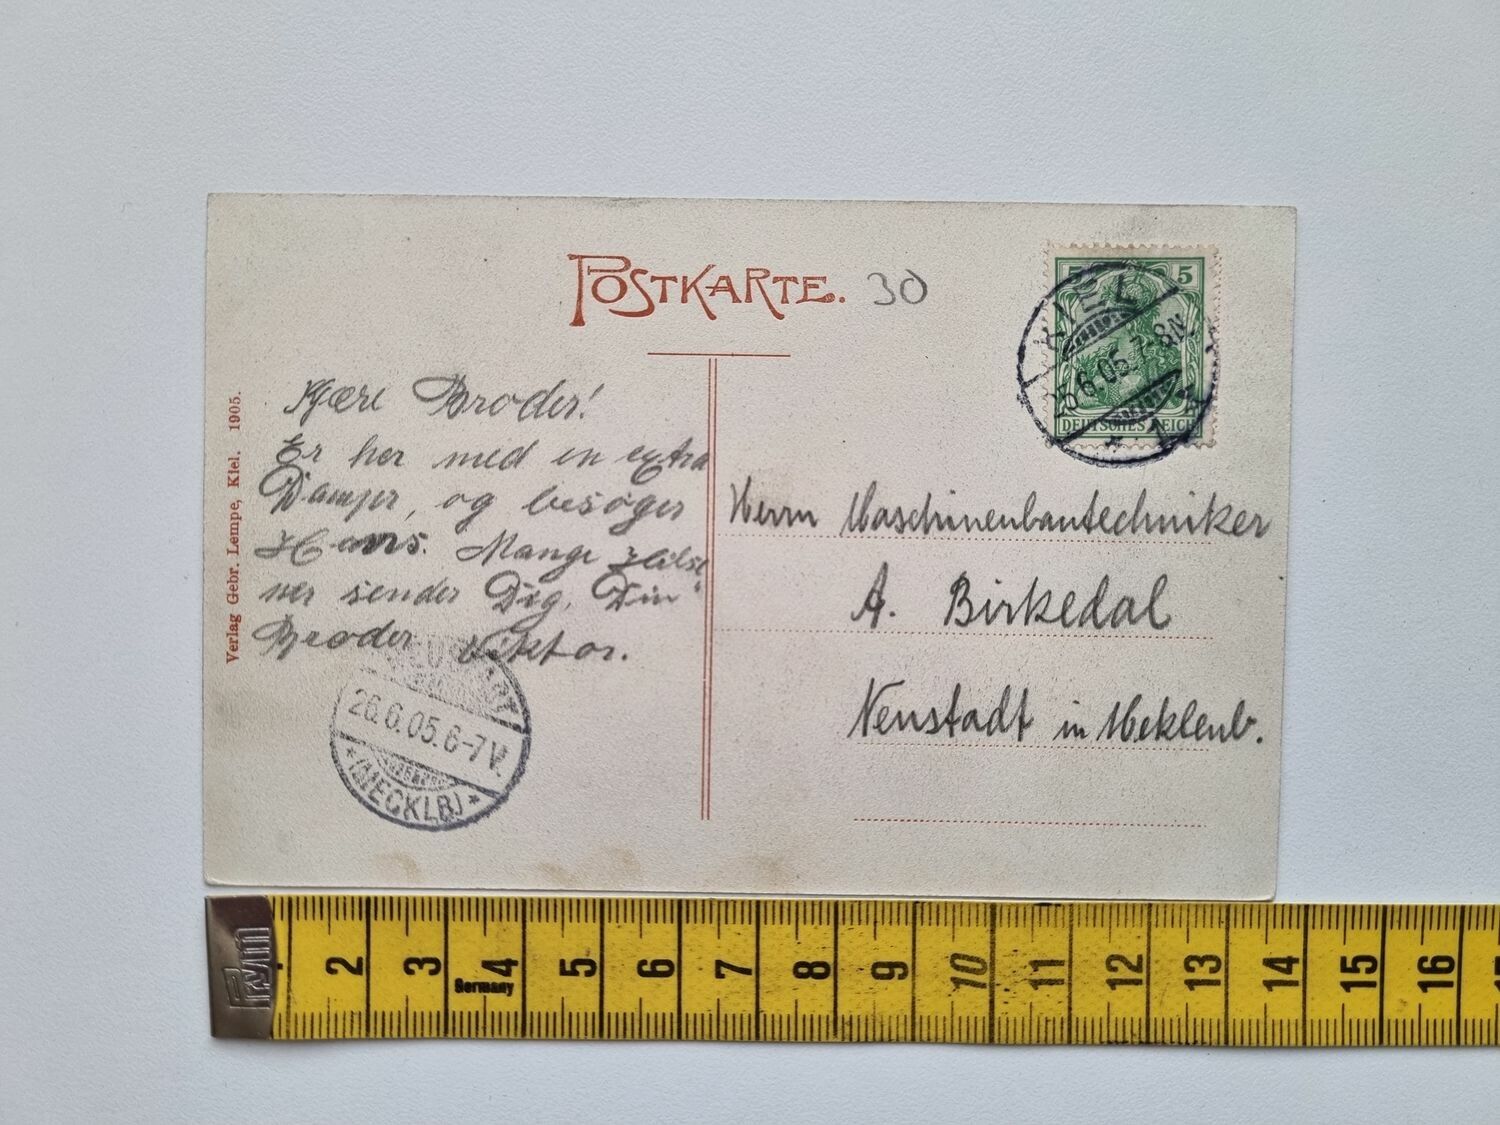 POSTKARTE. 30
5 5
KIEL
25.6.05.7-8N.
* 1 *
DEUTSCHES REICH
Verlag Gebr. Lempe, Kiel. 1905.
Kjære Broder!
Er her med en extra
Damper, og besøger
Hans. Mange Hilse
ner sender Dig, Din
Broder Viktor.
Herrn Maschinenbautechniker
A. Birkedal
Neustadt in Meklenb.
NEUSTADT
26.6.05.6-7V.
* (MECKLB) *
Prym
2 3 4 5 6 7 8 9 10 11 12 13 14 15 16
Germany